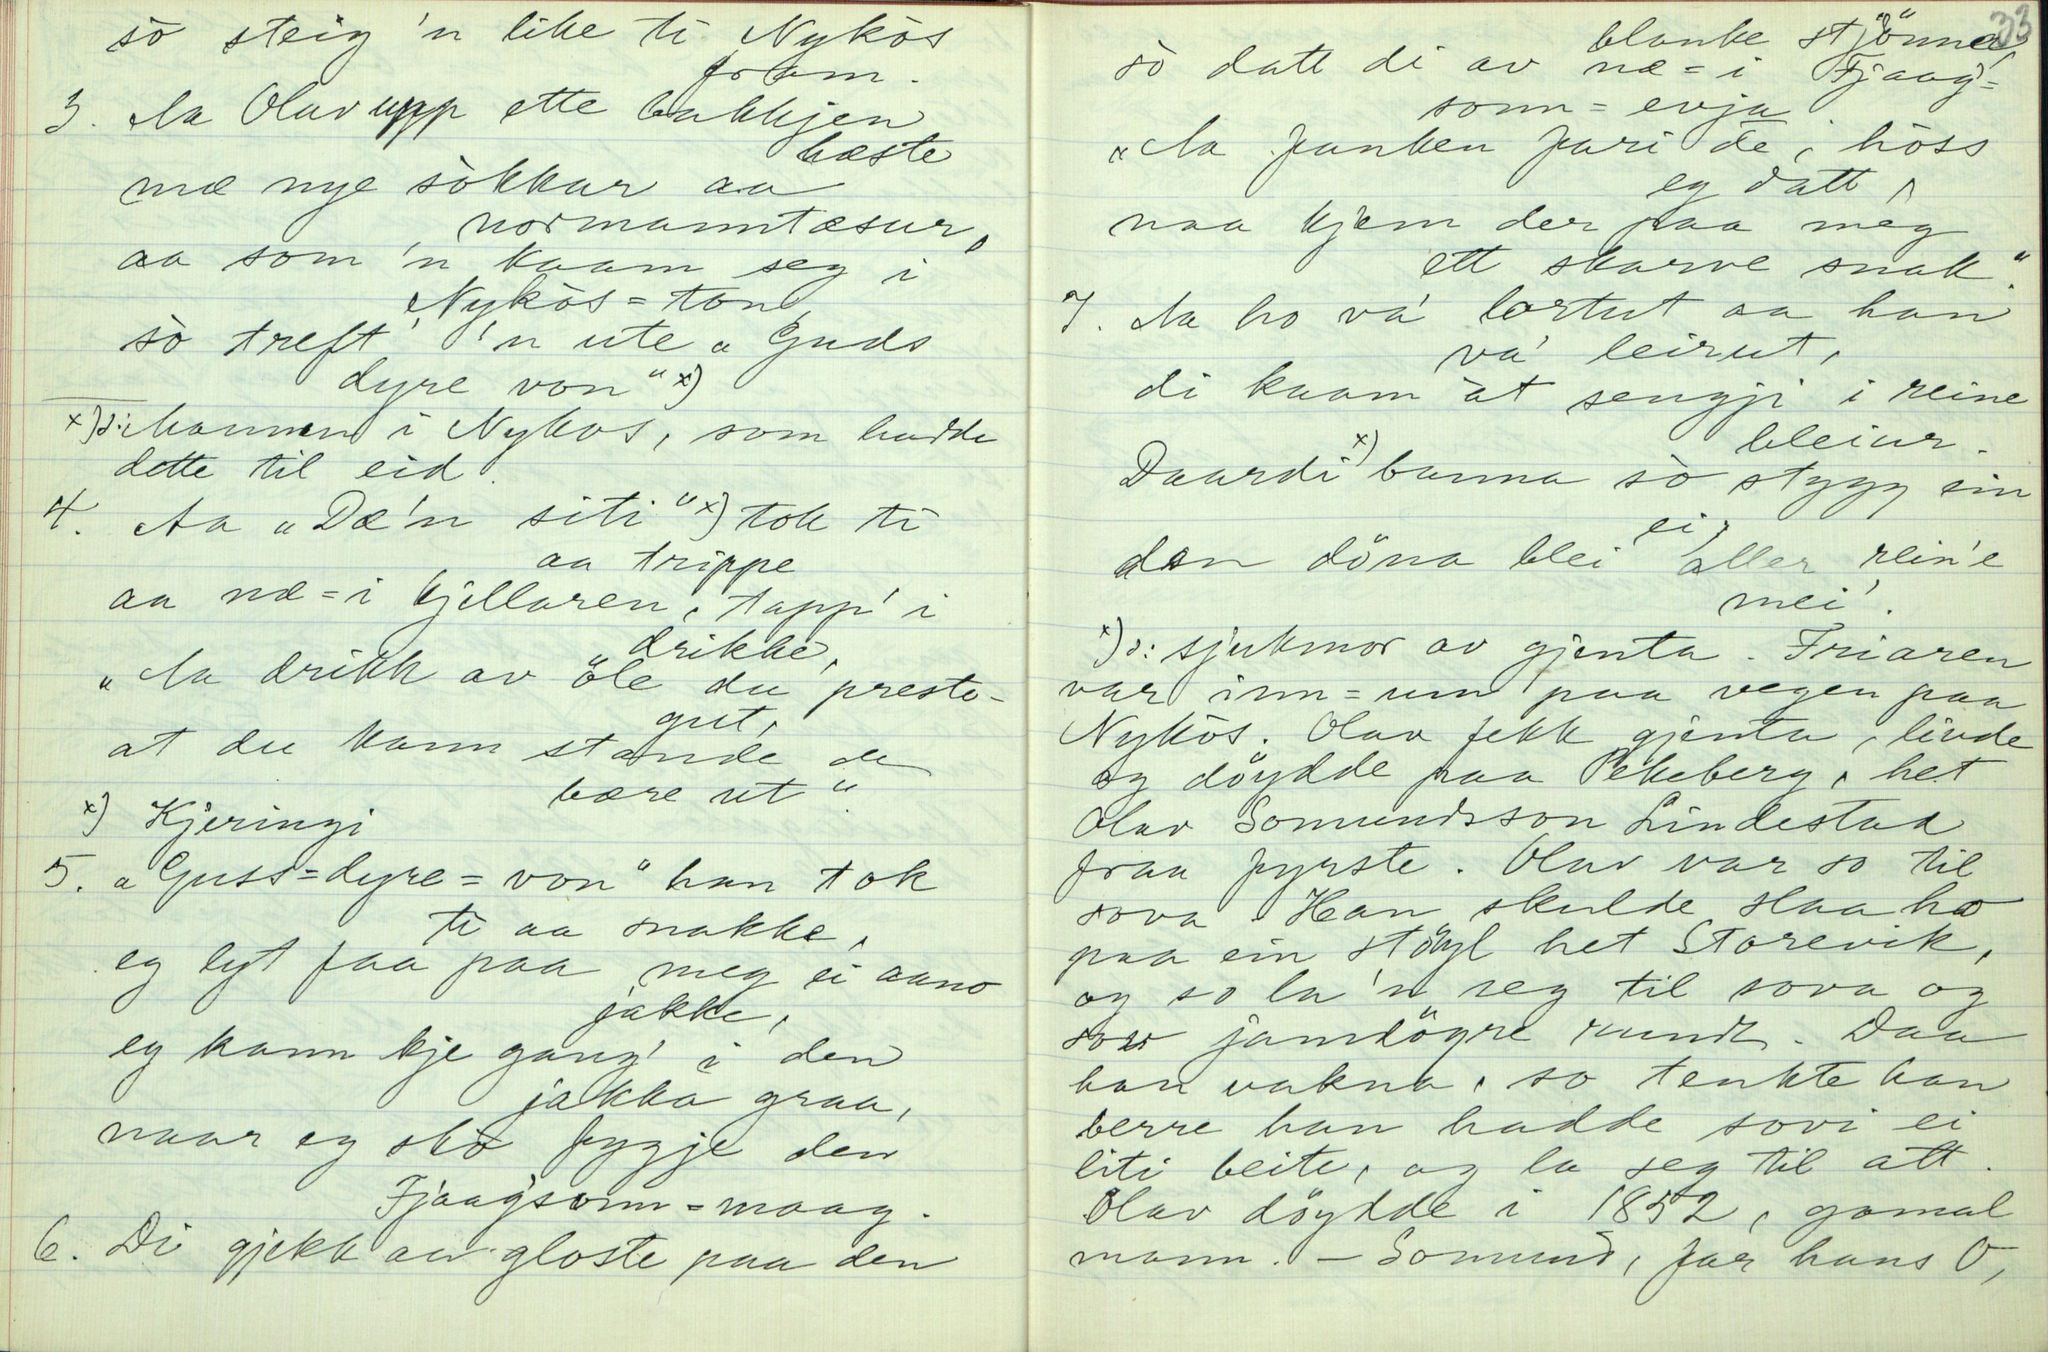 sò steig 'n like ti Nykòs
fram.
3. Aa Olav upp ette bakkjen
bæste
mæ nye sòkkar aa
normanntæsur,
aa som 'n kaam seg i
Nykòs-ton,
sò treft' 'n ute „Guds
dyre von" x)
x) ɔ: mannen i Nykos, som hadde
dette til eid.
4. Aa „Dæ'n siti" x) tok ti
aa trippe
aa næ-i kjellaren, tapp' i
drikke,
„Aa drikk av öle du preste-
gut,
at du kann stande de
bære ut".
x) Kjeringi
5. „Guss-dyre-von" han tok
ti aa snakke,
eg lyt faa paa meg ei aano
jakke,
eg kann kje gang' i den
jakka graa,
naar eg sko fygje den
Fjaagsonn-maag.
6. Di gjekk aa gloste paa den
33
blanke stjönnà,
sò datt di av næ-i Fjaag-
sonn-evja
„Aa fanken fari de, höss
eg datt,
naa kjem der paa meg
ett skarve snak".
7. Aa ho va' lortut aa han
va' leirut,
di kaam àt sengji i reine
bleiur.
Daardi x) banna sò stygg ein
ei,
den döna blei aller rein'e
mei'.
x) ɔ: sjukmor av gjenta. Friaren
var inn-um paa vegen paa
Nykòs. Olav fekk gjenta, livde
og döydde paa Pekeberg, het
Olav Somundsson Lindestad
fraa fyrste. Olav var so til
sova. Han skulde slaa ho
paa ein stöyl het Storevik,
og so la 'n seg til sova og
sov jamdögre rundt. Daa
han vakna, so tenkte han
berre han hadde sovi ei
liti beite, og la seg til att.
Olav döydde i 1852, gamal
mann. – Somund, far hans O,